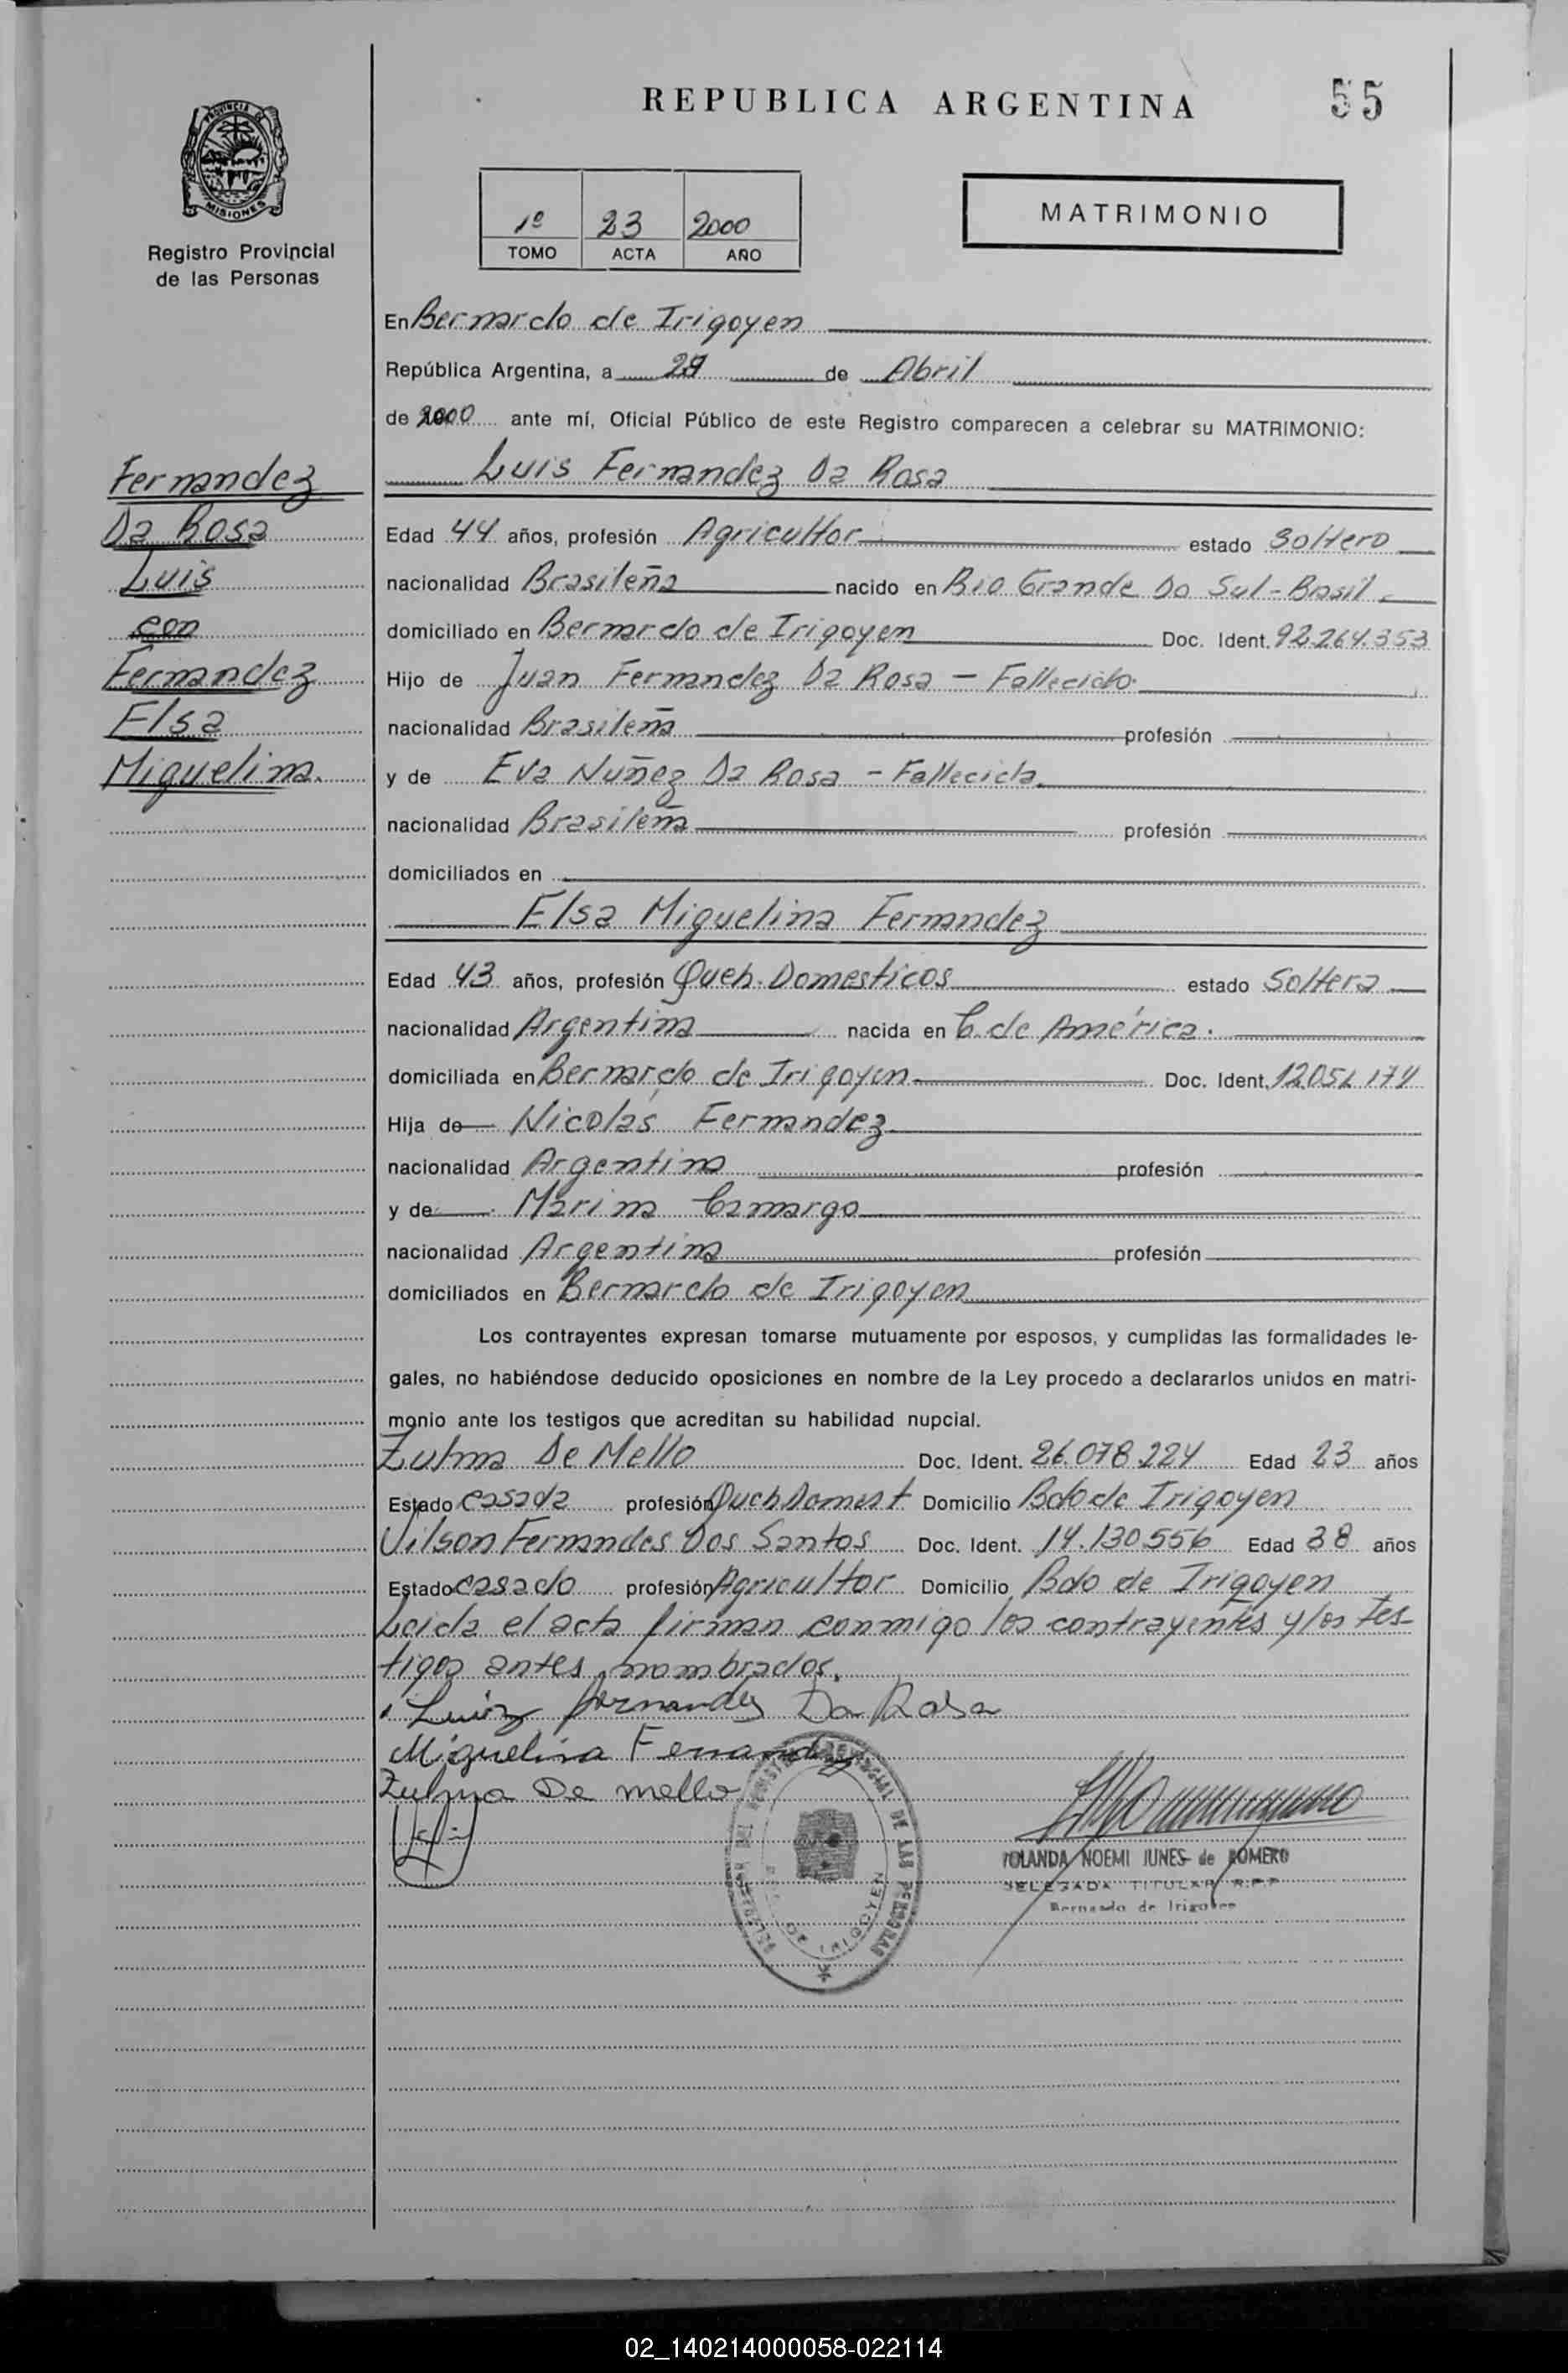 REPUBLICA ARGENTINA
55
PROVINCIA DE
MISIONES
Registro Provincial
de las Personas
1º 23 2000
TOMO ACTA AÑO
MATRIMONIO
En Bernardo de Irigoyen
República Argentina, a 29 de Abril
de 2000 ante mí, Oficial Público de este Registro comparecen a celebrar su MATRIMONIO:
Luis Fernandez Da Rosa
Fernandez
Da Rosa
Luis
con
Fernandez
Elsa
Miguelina.
Edad 44 años, profesión Agricultor estado Soltero
nacionalidad Brasileña nacido en Rio Grande Do Sul - Brasil
domiciliado en Bernardo de Irigoyen Doc. Ident. 92.264.353
Hijo de Juan Fernandez Da Rosa - Fallecido
nacionalidad Brasileña profesión
y de Eva Nuñez Da Rosa - Fallecida
nacionalidad Brasileña profesión
domiciliados en
Elsa Miguelina Fernandez
Edad 43 años, profesión Queh. Domesticos estado Soltera
nacionalidad Argentina nacida en C. de América.
domiciliada en Bernardo de Irigoyen Doc. Ident.
Hija de Nicolás Fernandez
nacionalidad Argentina profesión
y de Marina Camargo
nacionalidad Argentina profesión
domiciliados en Bernardo de Irigoyen
Los contrayentes expresan tomarse mutuamente por esposos, y cumplidas las formalidades le-
gales, no habiéndose deducido oposiciones en nombre de la Ley procedo a declararlos unidos en matri-
monio ante los testigos que acreditan su habilidad nupcial.
Zulma De Mello Doc. Ident. 26.078.224 Edad 23 años
Estado casada profesión Queh Domest Domicilio Bdo de Irigoyen
Vilson Fernandes Dos Santos Doc. Ident. 14.130.556 Edad 38 años
Estado casado profesión Agricultor Domicilio Bdo de Irigoyen
Leida el acta firman conmigo los contrayentes y los tes-
tigos antes nombrados.
Luiz fernandes Da Rosa
Miguelina Fernandez
Zulma De mello
DE LAS PERSONAS
DE IRIGOYEN
YOLANDA NOEMI JUNES de ROMERO
DELEGADA TITULAR R.P.P.
Bernardo de Irigoyen
02_140214000058-022114